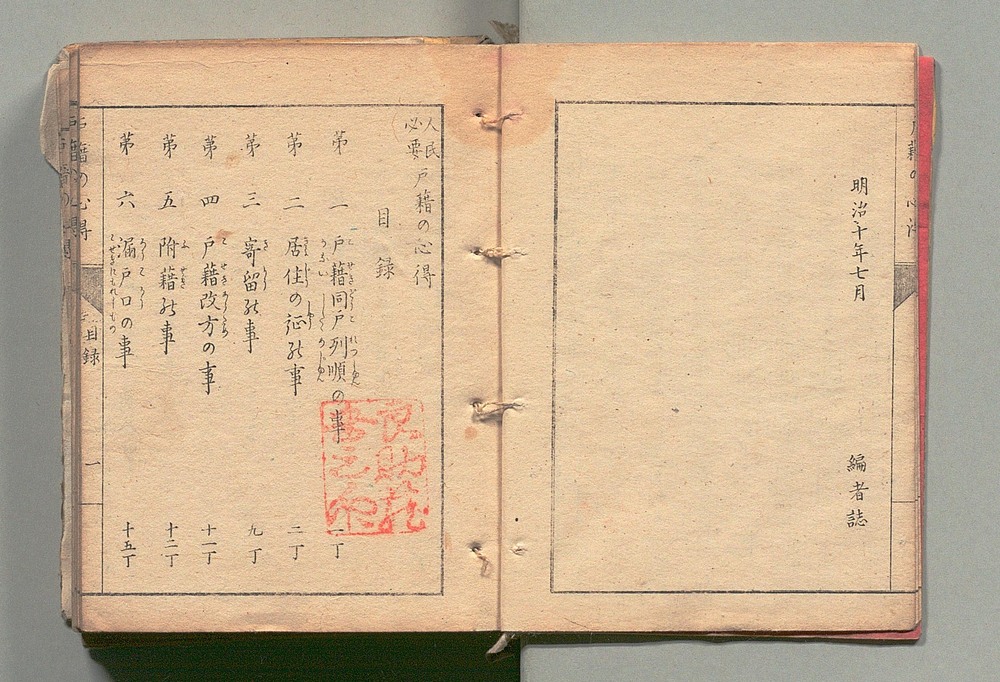 明治十年七月
編者誌
人民必要 戸籍の心得
目録
第一 戸籍同戸列順の事 一丁
第二 居住の証の事 二丁
第三 寄留の事 九丁
第四 戸籍改方の事 十一丁
第五 附籍の事 十二丁
第六 漏戸口の事 十五丁
戸籍の心得 目録 一